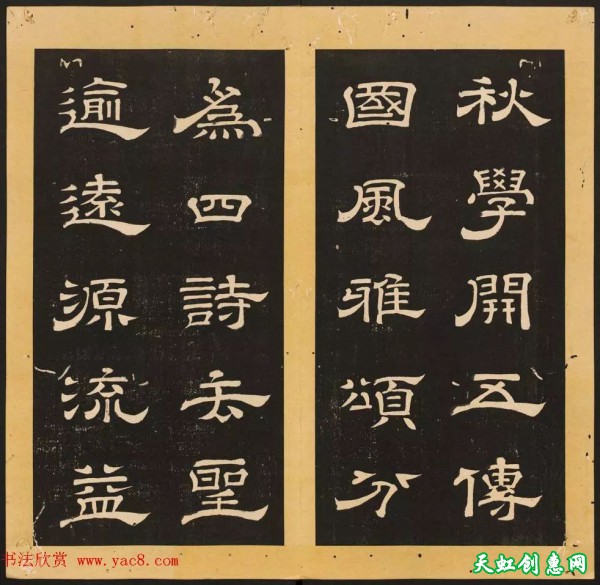 秋學開五傳
國風雅頌分
為四詩去聖
逾遠源流益
书法欣赏 www.yac8.com
天虹创惠网